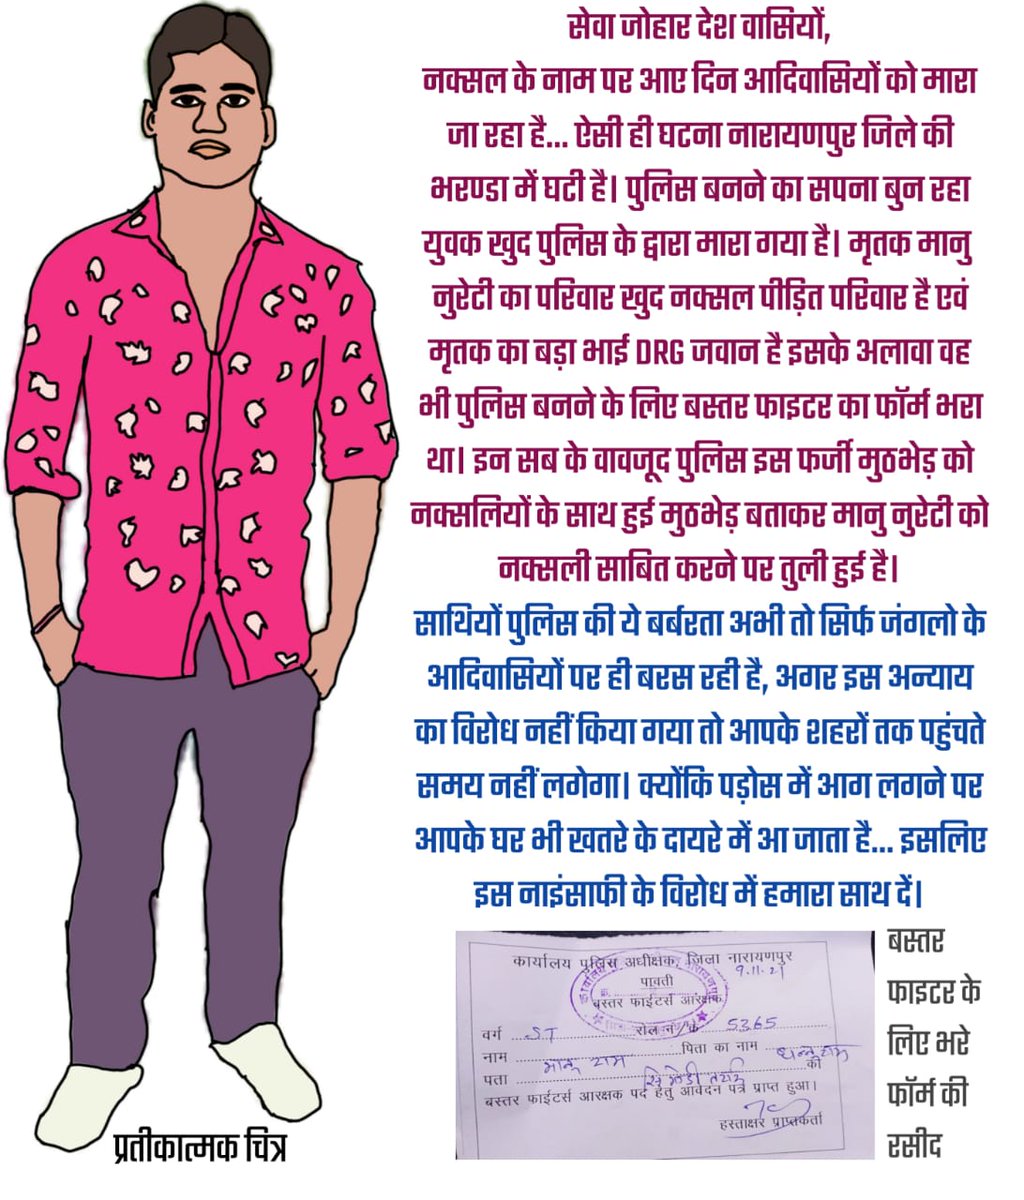 सेवा जोहार देश वासियों,
नक्सल के नाम पर आए दिन आदिवासियों को मारा
जा रहा है... ऐसी ही घटना नारायणपुर जिले की
भरण्डा में घटी है। पुलिस बनने का सपना बुन रहा
युवक खुद पुलिस के द्वारा मारा गया है। मृतक मानु
नुरेटी का परिवार खुद नक्सल पीड़ित परिवार है एवं
मृतक का बड़ा भाई DRG जवान है इसके अलावा वह
भी पुलिस बनने के लिए बस्तर फाइटर का फॉर्म भरा
था। इन सब के वावजूद पुलिस इस फर्जी मुठभेड़ को
नक्सलियों के साथ हुई मुठभेड़ बताकर मानु नुरेटी को
नक्सली साबित करने पर तुली हुई है।
साथियों पुलिस की ये बर्बरता अभी तो सिर्फ जंगलो के
आदिवासियों पर ही बरस रही है, अगर इस अन्याय
का विरोध नहीं किया गया तो आपके शहरों तक पहुंचते
समय नहीं लगेगा। क्योंकि पड़ोस में आग लगने पर
आपके घर भी खतरे के दायरे में आ जाता है... इसलिए
इस नाइंसाफी के विरोध में हमारा साथ दें।
कार्यालय पुलिस अधीक्षक, जिला नारायणपुर
9.11.21
पावती
बस्तर फाईटर्स आरक्षक
वर्ग ST रोल नं 5365
नाम मानू राम पिता का नाम
पता की
बस्तर फाईटर्स आरक्षक पद हेतु आवेदन पत्र प्राप्त हुआ।
हस्ताक्षर प्राप्तकर्ता
बस्तर
फाइटर के
लिए भरे
फॉर्म की
रसीद
प्रतीकात्मक चित्र